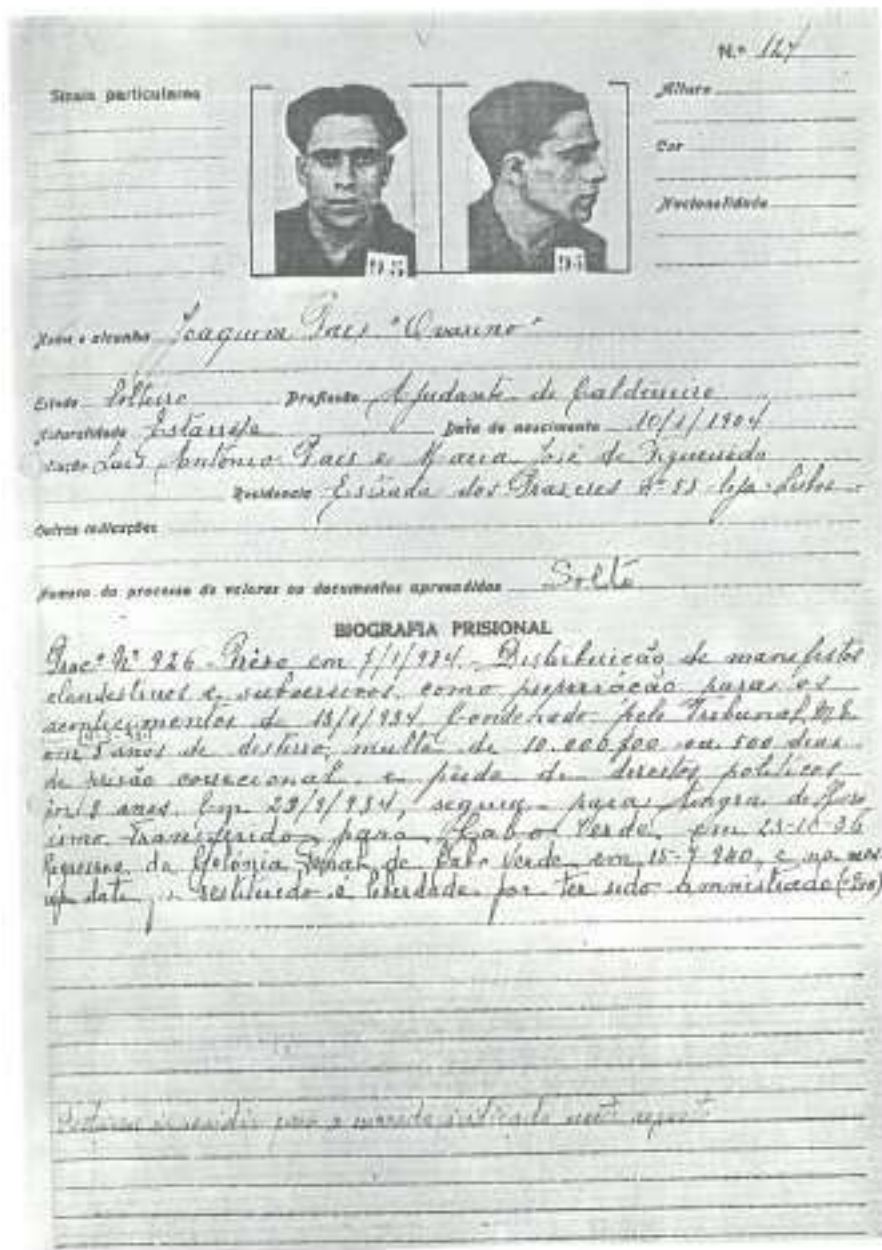 N.º 127
Sinais particulares
Altura
Cor
Nacionalidade
95
95
Nome e alcunha Joaquim Pais "Ovarino"
Estado Solteiro Profissão Ajudante de Caldeireiro
Naturalidade Estarreja Data de nascimento 10/1/1904
Filiação Luís António Pais e Maria José de Figueiredo
Residencia Estrada dos Prazeres nº 53 loja-Lisboa
Outras indicações
Numero do processo de valores ou documentos apreendidos Solto
BIOGRAFIA PRISIONAL
Proc.º Nº 926 - Prêso em 7/1/934 - Distribuição de manifestos
clandestinos e subversivos, como preparação para os
acontecimentos de 18/1/934. Condenado pelo Tribunal M.E.
em 5 anos de desterro, multa de 10.000$00 ou 500 dias
de prisão correcional e perda de direitos politicos
por 8 anos. Em 23/9/934, seguiu para Angra do Hero
ismo. Transferido para Cabo Verde, em 23-10-36
Regressou da Colónia Penal de Cabo Verde em 15-7-940, e na mes-
ma data restituido á liberdade por ter sido amnistiado
para a morada indicada